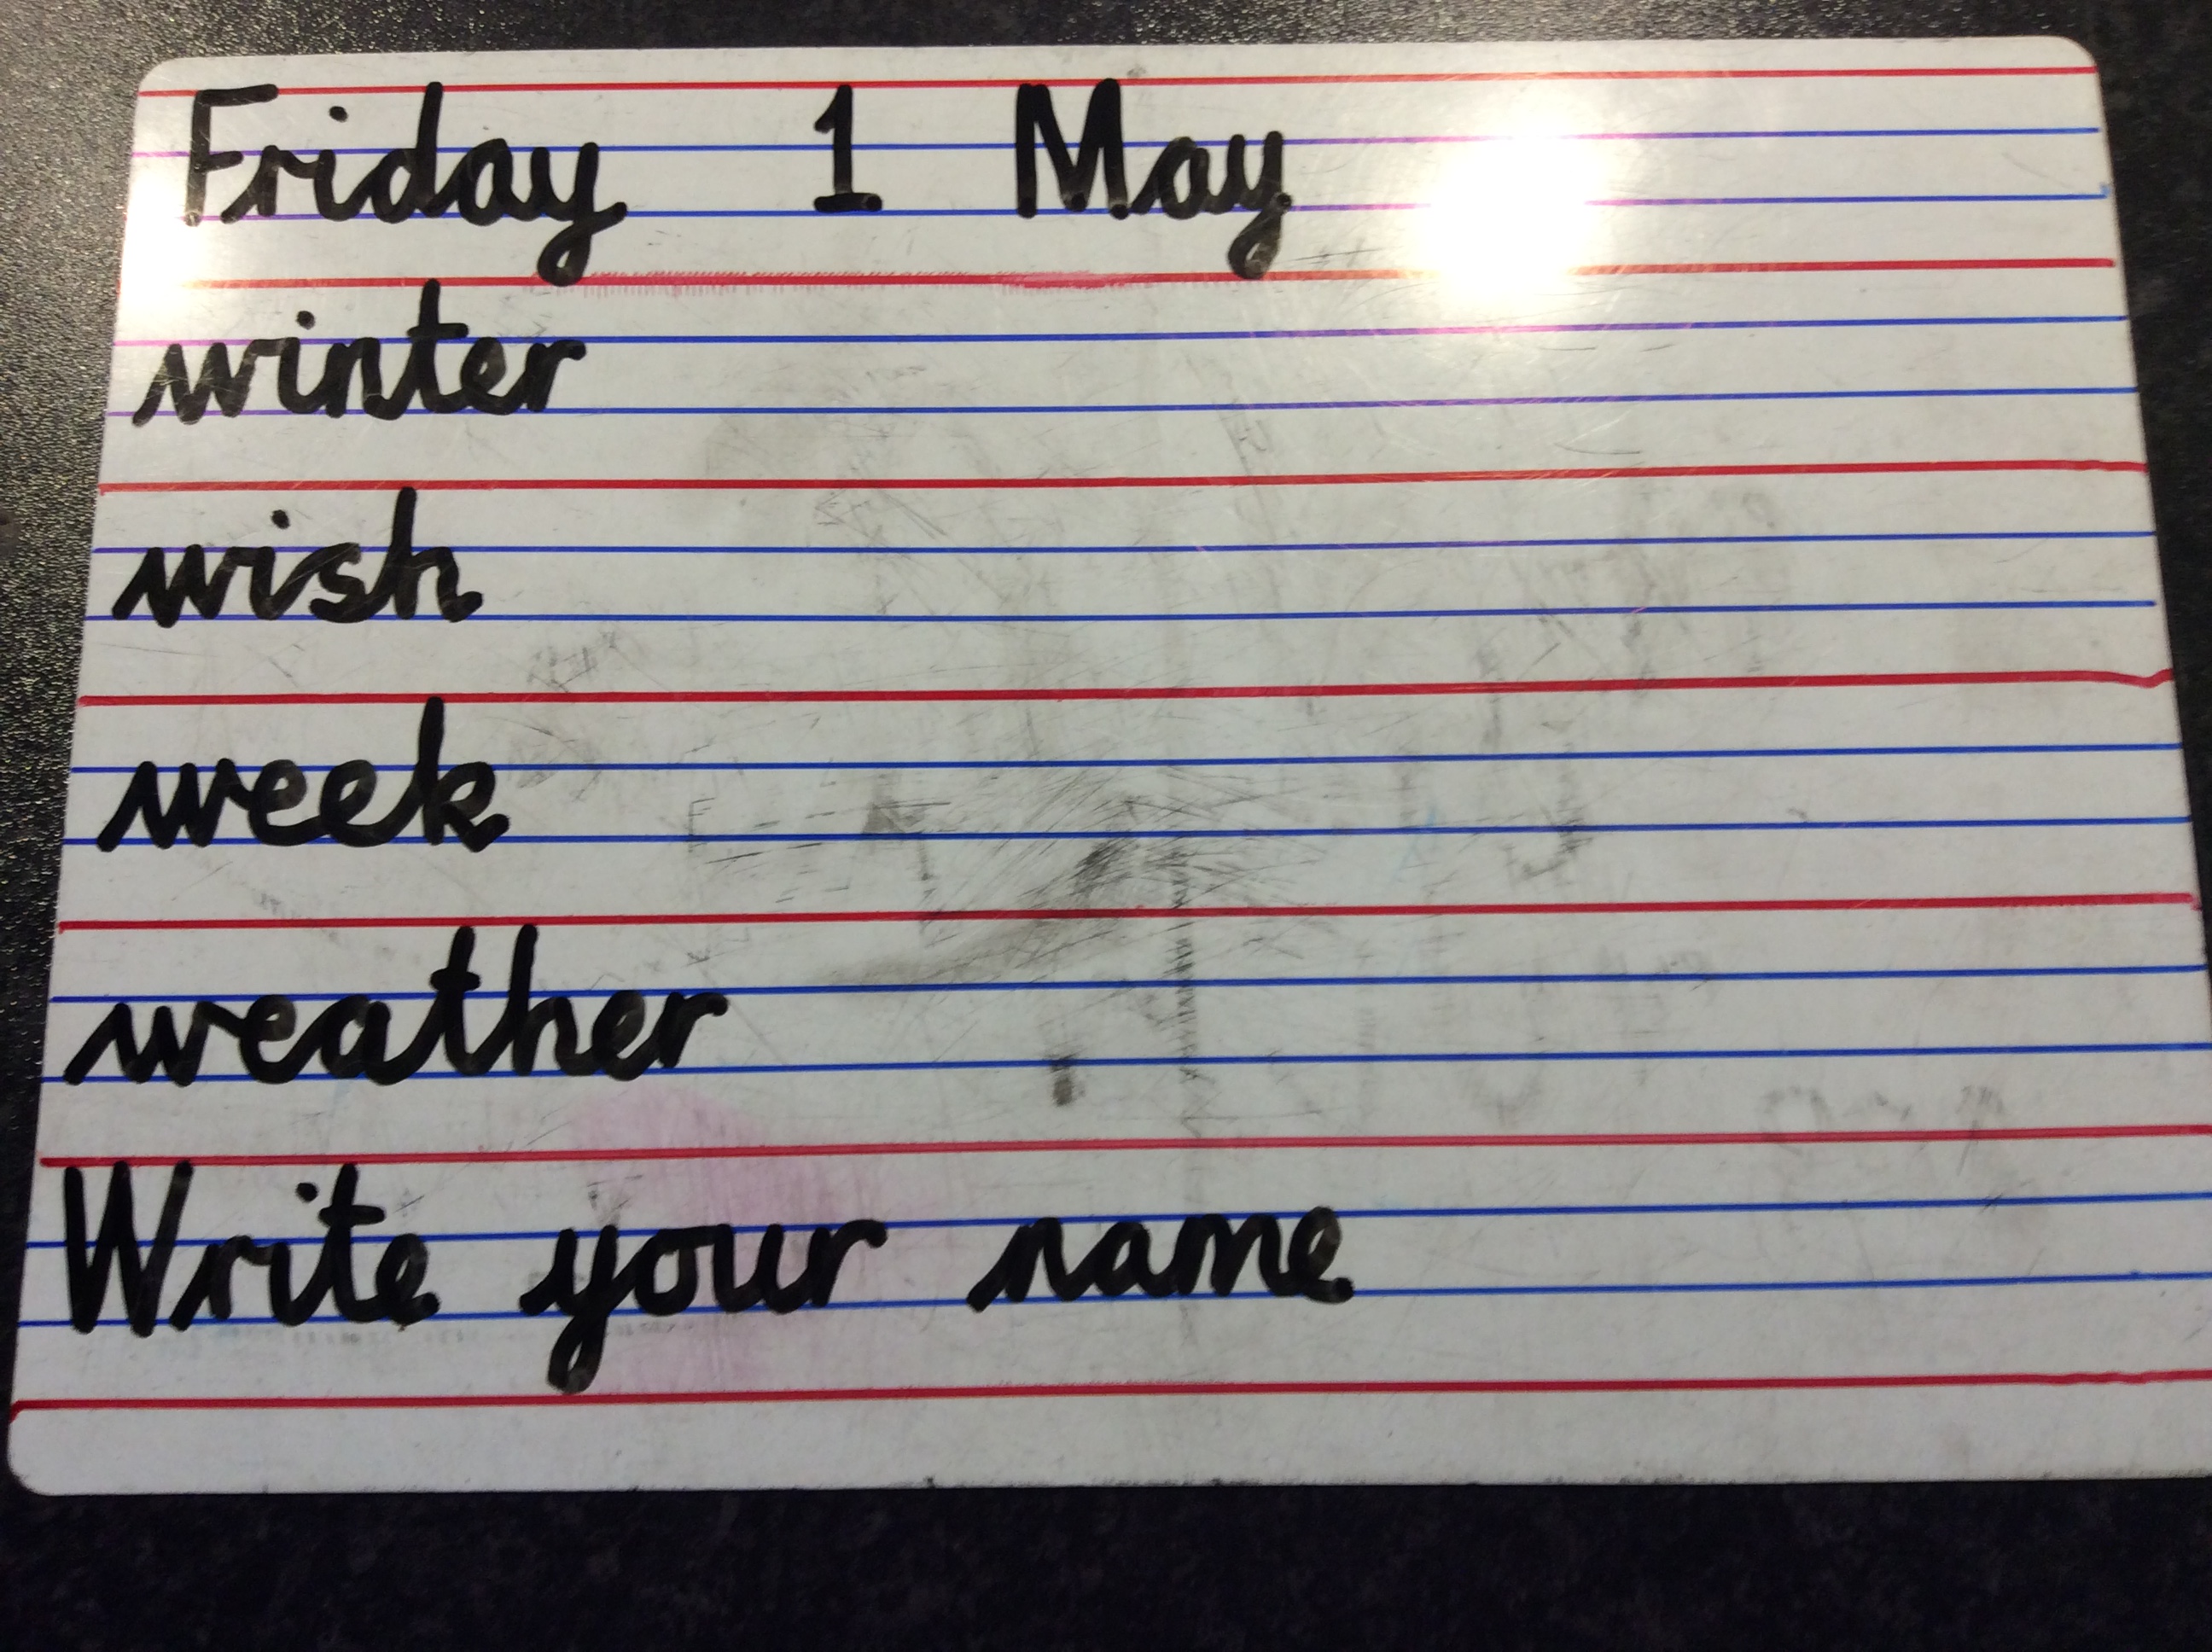 Friday 1 May
winter
wish
week
weather
Write your name